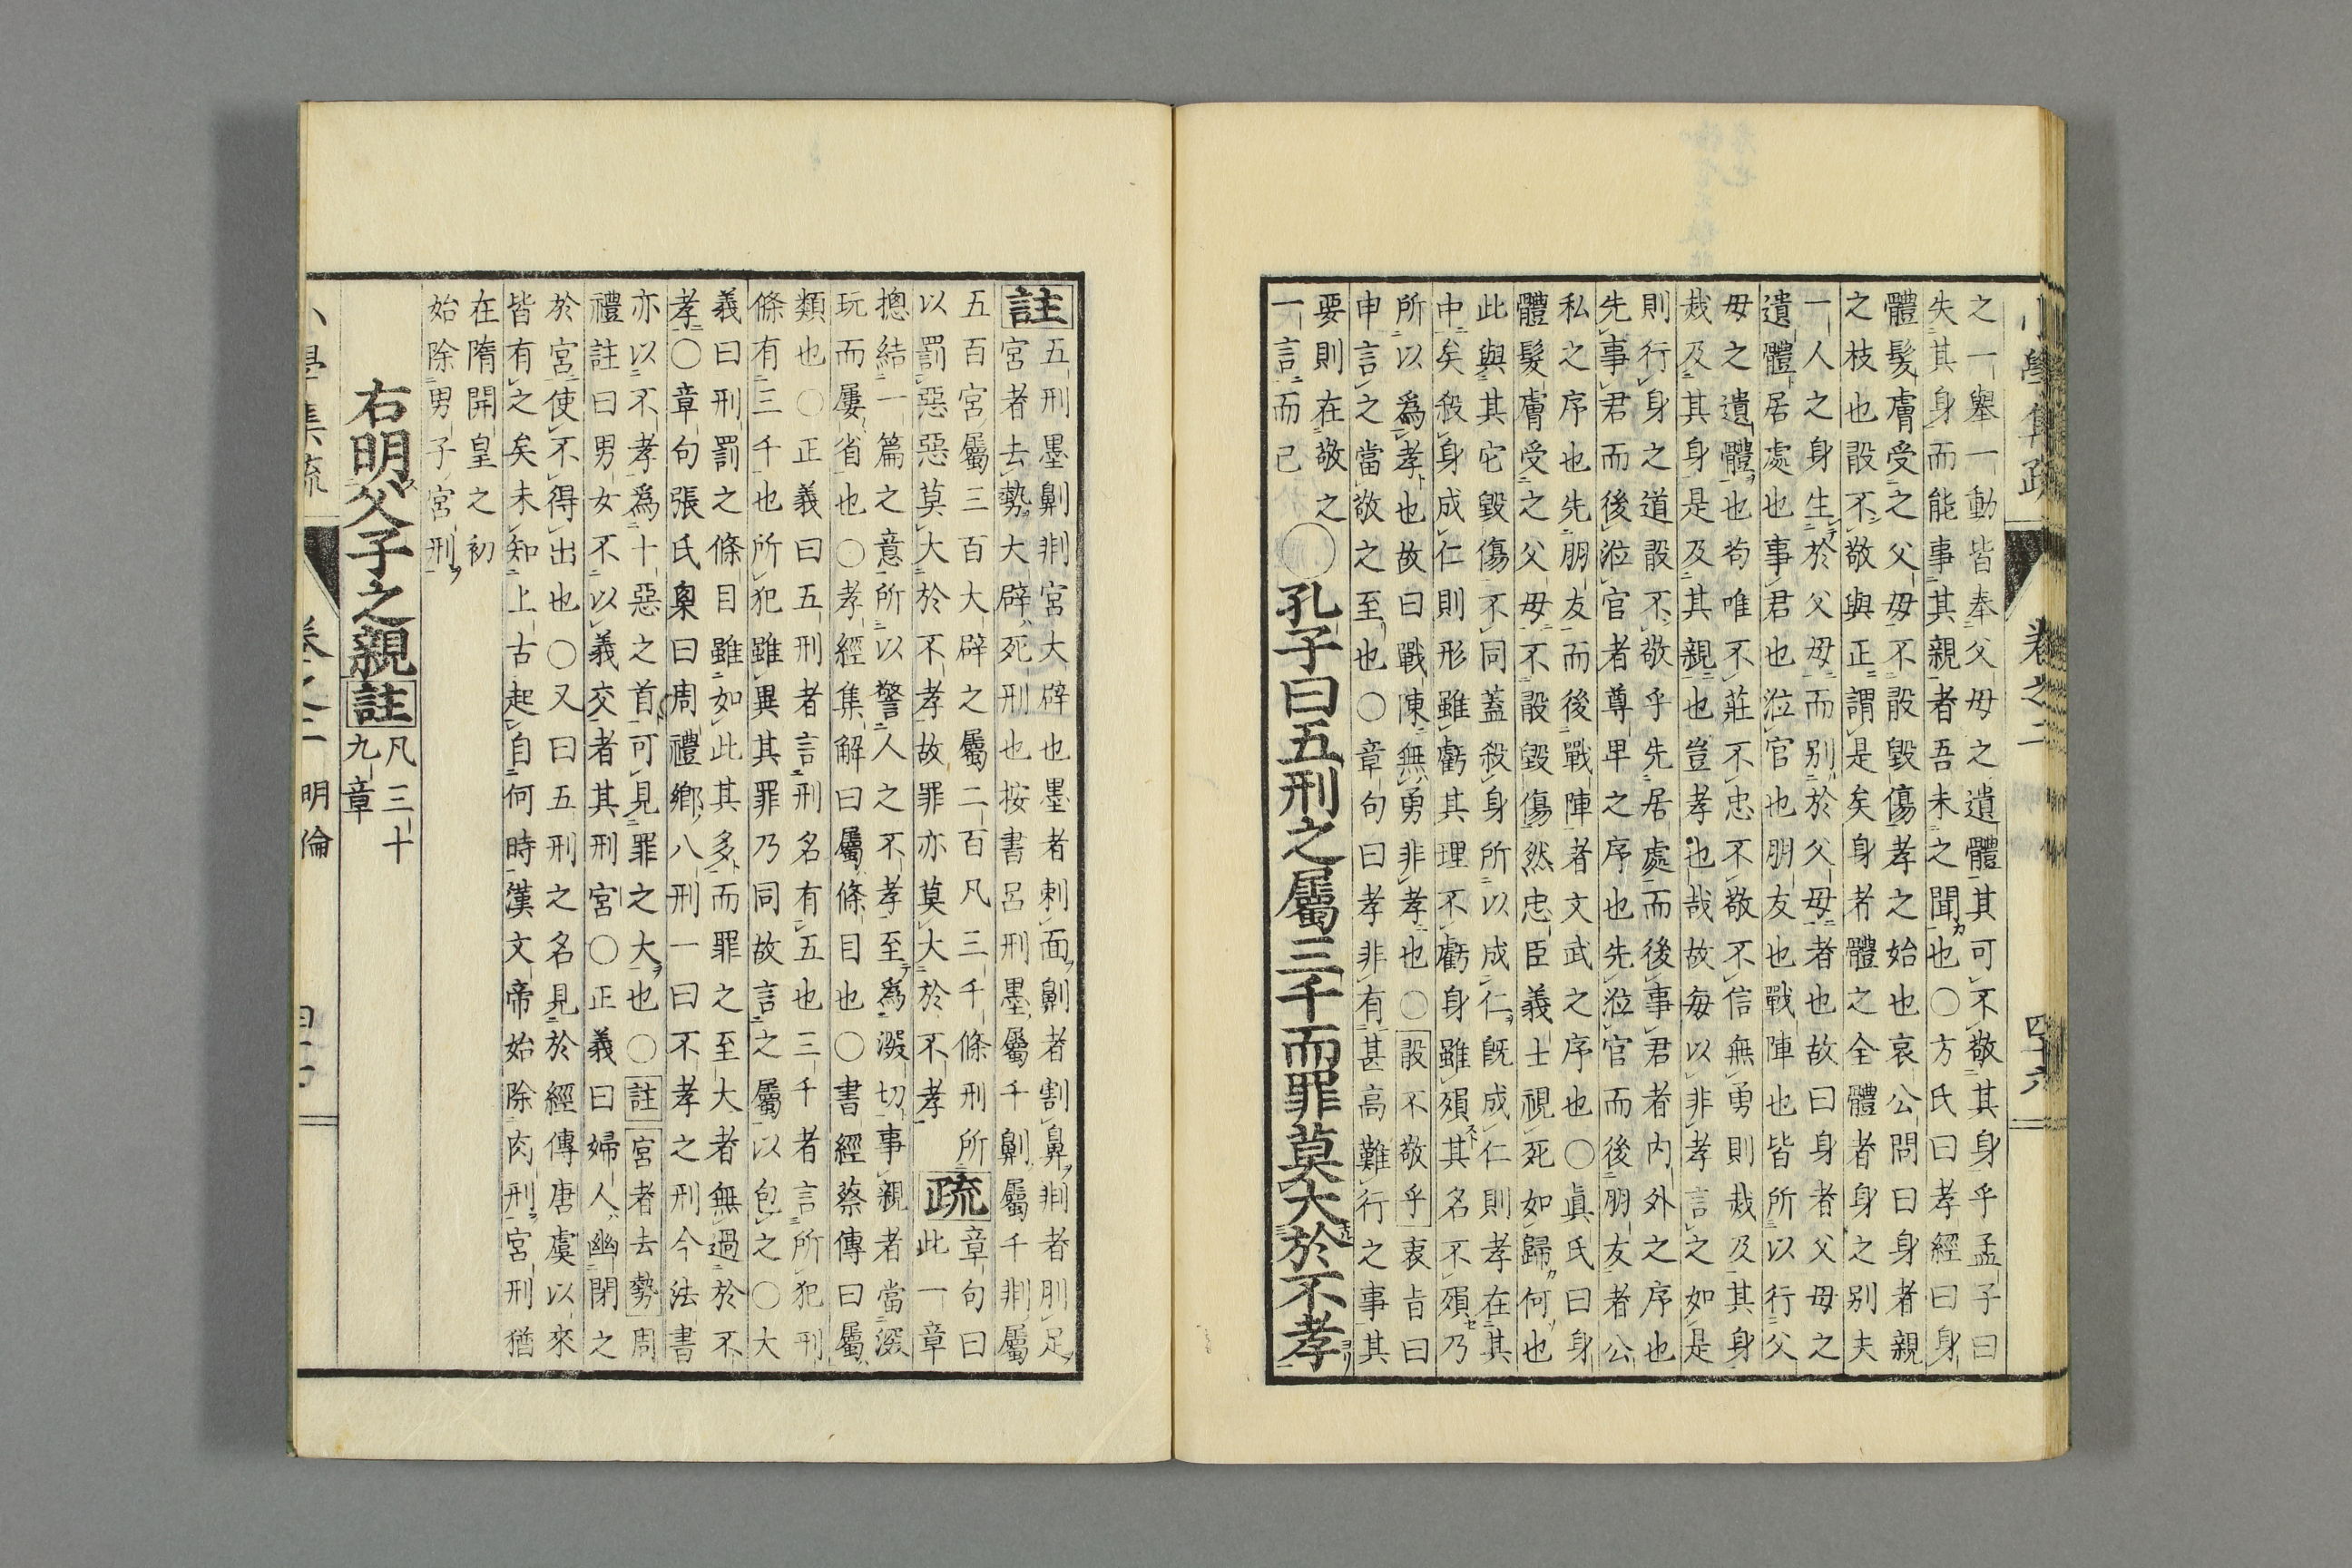 小學集疏
卷之二
四十六
之一擧一動皆奉父母之遺體其可不敬其身乎孟子曰
失其身而能事其親者吾未之聞也〇方氏曰孝經曰身
體髮膚受之父母不敢毀傷孝之始也哀公問曰身者親
之枝也敢不敬與正謂是矣身者體之全體者身之別夫
一人之身生於父母而別於父母者也故曰身者父母之
遺體居處也事君也涖官也朋友也戰陣也皆所以行父
母之遺體也苟唯不莊不忠不敬不信無勇則烖及其身
烖及其身是及其親也豈孝也哉故每以非孝言之如是
則行身之道敢不敬乎先居處而後事君者內外之序也
先事君而後涖官者尊卑之序也先涖官而後朋友者公
私之序也先朋友而後戰陣者文武之序也〇眞氏曰身
體髮膚受之父母不敢毀傷然忠臣義士視死如歸何也
此與其它毀傷不同蓋殺身所以成仁旣成仁則孝在其
中矣殺身成仁則形雖虧其理不虧身雖殞其名不殞乃
所以爲孝也故曰戰陳無勇非孝也〇敢不敬乎衷旨曰
申言之當敬之至也〇章句曰孝非有甚高難行之事其
要則在敬之
一言而已
〇孔子曰五刑之屬三千而罪莫大於不孝
註五刑墨劓剕宮大辟也墨者刺面劓者割鼻剕者刖足
宮者去勢大辟死刑也按書呂刑墨屬千劓屬千剕屬
五百宮屬三百大辟之屬二百凡三千條刑所
以罰惡惡莫大於不孝故罪亦莫大於不孝
疏章句曰
此一章
摠結一篇之意所以警人之不孝至爲深切事親者當深
玩而屢省也〇孝經集解曰屬條目也〇書經蔡傳曰屬
類也〇正義曰五刑者言刑名有五也三千者言所犯刑
條有三千也所犯雖異其罪乃同故言之屬以包之〇大
義曰刑罰之條目雖如此其多而罪之至大者無過於不
孝〇章句張氏栗曰周禮鄉八刑一曰不孝之刑今法書
亦以不孝爲十惡之首可見罪之大也〇註宮者去勢周
禮註曰男女不以義交者其刑宮〇正義曰婦人幽閉之
於宮使不得出也〇又曰五刑之名見於經傳唐虞以來
皆有之矣未知上古起自何時漢文帝始除肉刑宮刑猶
在隋開皇之初
始除男子宮刑
右明父子之親註凡三十
九章
小學集疏
卷之二
明倫